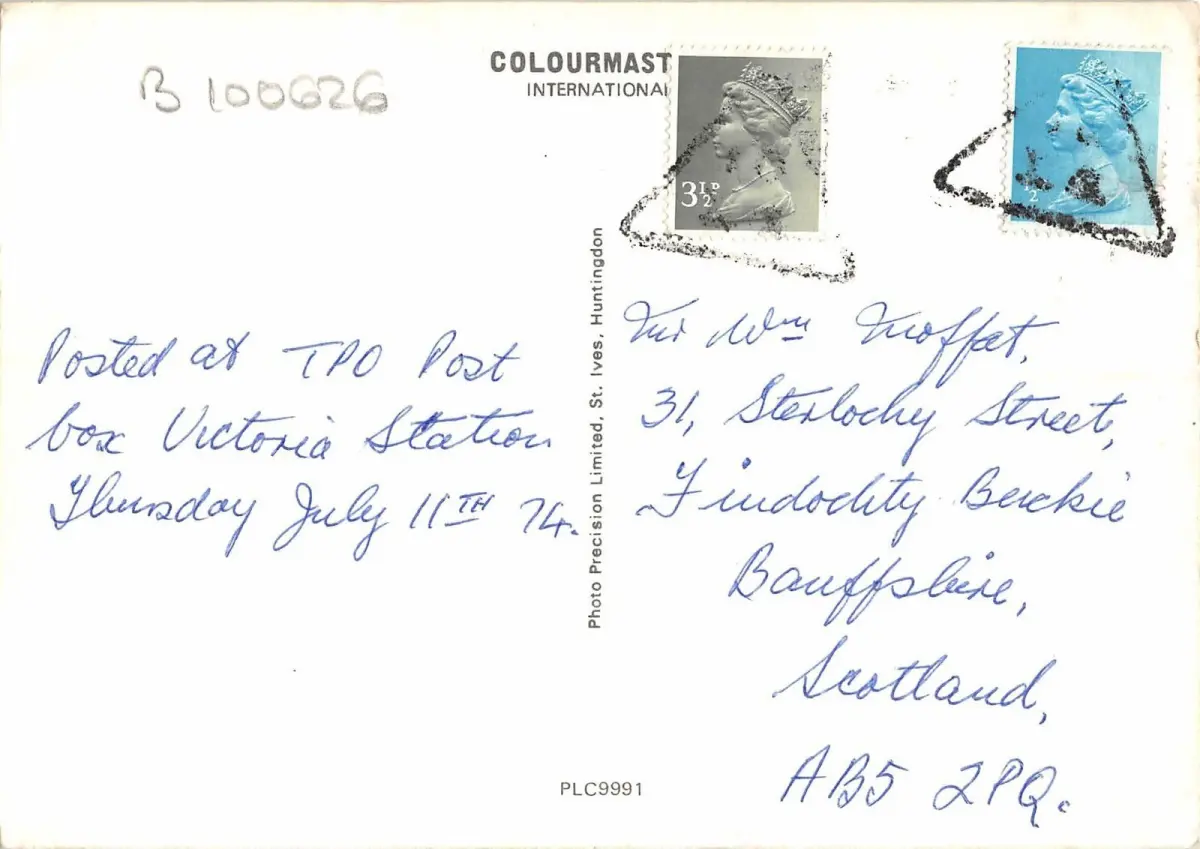 B 100626
COLOURMAST
INTERNATIONAL
3½P
½
Posted at TPO Post
box Victoria Station
Thursday July 11TH 74.
Photo Precision Limited, St. Ives, Huntingdon
Mr Wm Moffat,
31, Sterlochy Street,
Findochty Buckie
Banffshire,
Scotland,
AB5 2PQ.
PLC9991